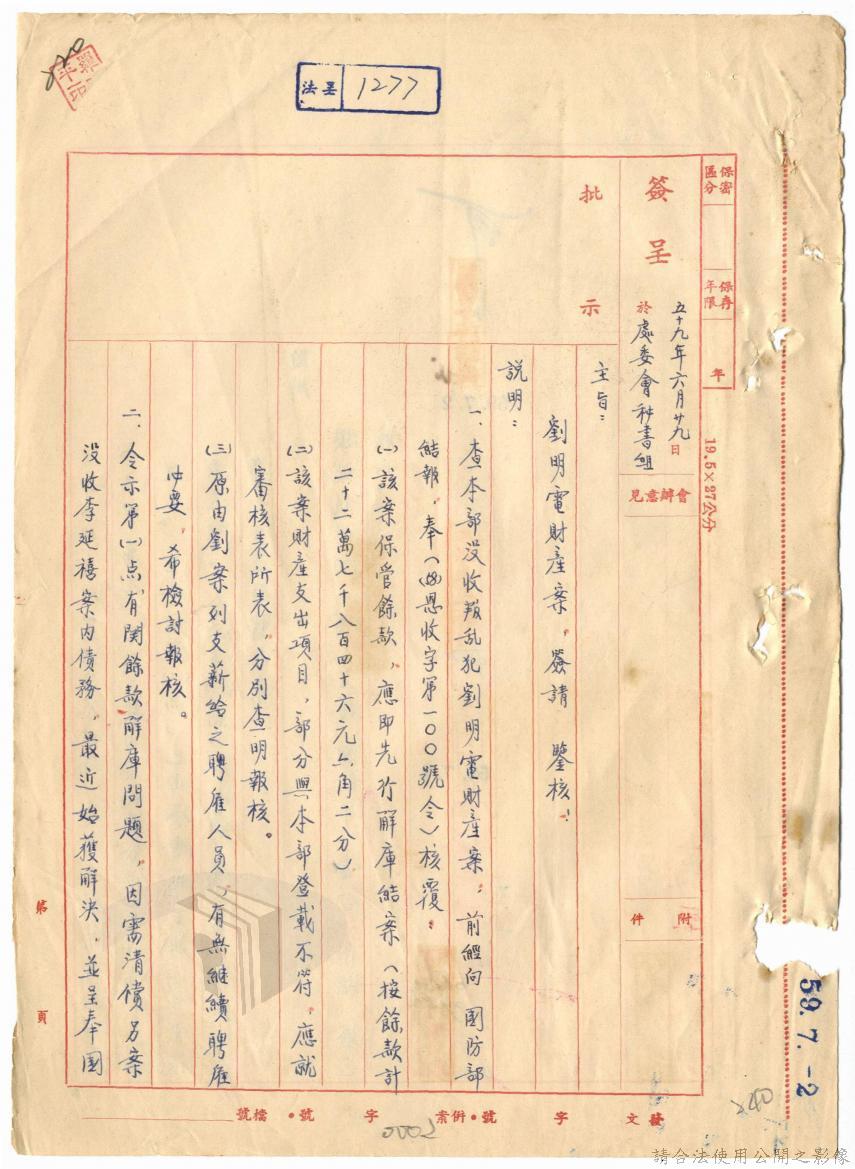 法呈 1277
保密區分
保存年限
年
19.5×27公分
簽呈
五十九年六月廿九日
於處委會秘書組
會辦意見
附件
批示
主旨：
劉明電財產案，簽請 鑒核！
說明：
一、查本部没收叛乱犯劉明電財產案，前經向 國防部
結報，奉 核覆：
㈠該案保管餘款，應即先行解庫結案（按餘款計
二十二萬七千八百四十六元六角二分）
㈡該案財產支出項目，部分與本部登載不符，應就
審核表所表，分別查明報核。
㈢原由劉案列支薪給之聘雇人員，有無繼續聘雇
必要，希檢討報核。
二、令示第㈠点有関餘款解庫問題，因需清償另案
没收李延禧案内債務，最近始獲解決，並呈奉国
第 頁
發文 字 號•併案 字 號•檔號
0002
240
59.7.-2
請合法使用公開之影像